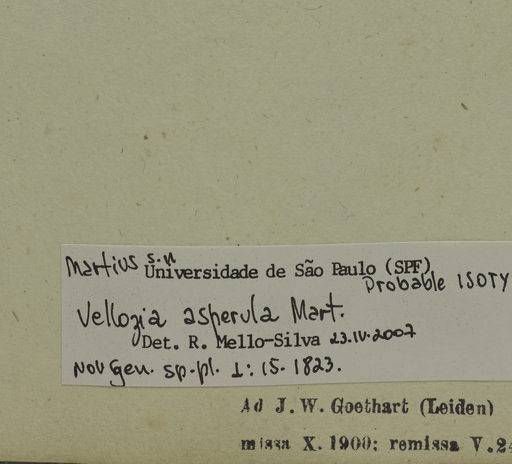 Martius s.n
Universidade de São Paulo (SPF)
Probable ISOTY
Vellozia asperula Mart.
Det. R. Mello-Silva 23.IV.2007
Nov Gen. sp. pl. 1: 15. 1823.
Ad J. W. Goethart (Leiden)
missa X. 1900; remissa V. 24